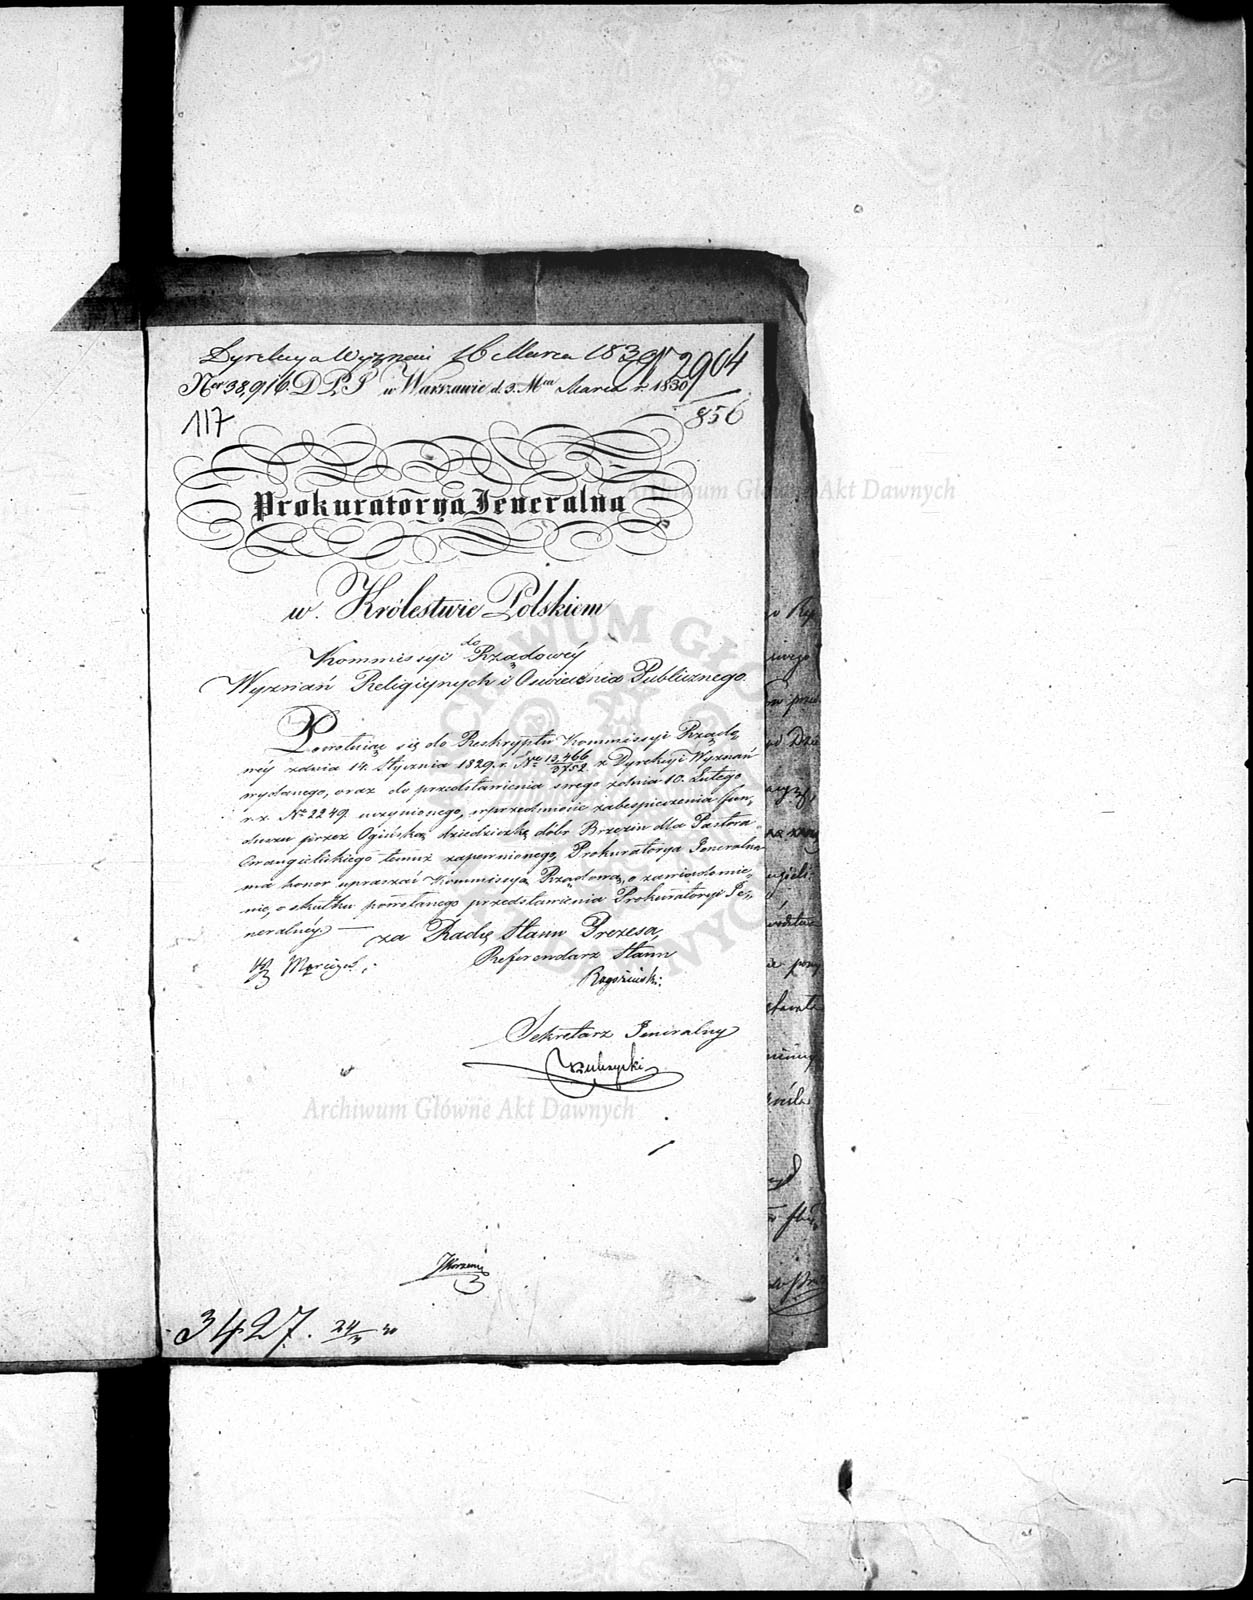 Dyrekcya Wyznań 16 Marca 1830 N 2904
Ner 38,916 D.P.P w Warszawie d. 3. Mca Marca r. 1830
856
117
Prokuratorya Jeneralna
w Królestwie Polskiem
do
Kommissyi Rządowéy
Wyznań Religiynych i Oświecenia Publicznego
Powołuiąc się do Reskryptu Kommissyi Rządo-
wéy z dnia 14. Stycznia 1829. r. Nro 13,466/3752 z Dyrekcyi Wyznań
wydanego, oraz do przedstawienia swego z dnia 10. Lutego
r. z. No 2249 uczynionego, w przedmiocie zabezpieczenia fun-
duszu przez Ogińską dziedziczkę dóbr Brzezin dla Pastora
Ewangielickiego temuż zapewnionego, Prokuratorya Jeneralna
ma honor upraszać Kommissyą Rządową, o zawiadomie-
nie, o skutku powołanego przedstawienia Prokuratoryi Je-
neralney. —
za Radcę Stanu Prezesa,
Referendarz Stanu
Sekretarz Jeneralny
3427. 24/3 30
Archiwum Główne Akt Dawnych
Archiwum Główne Akt Dawnych